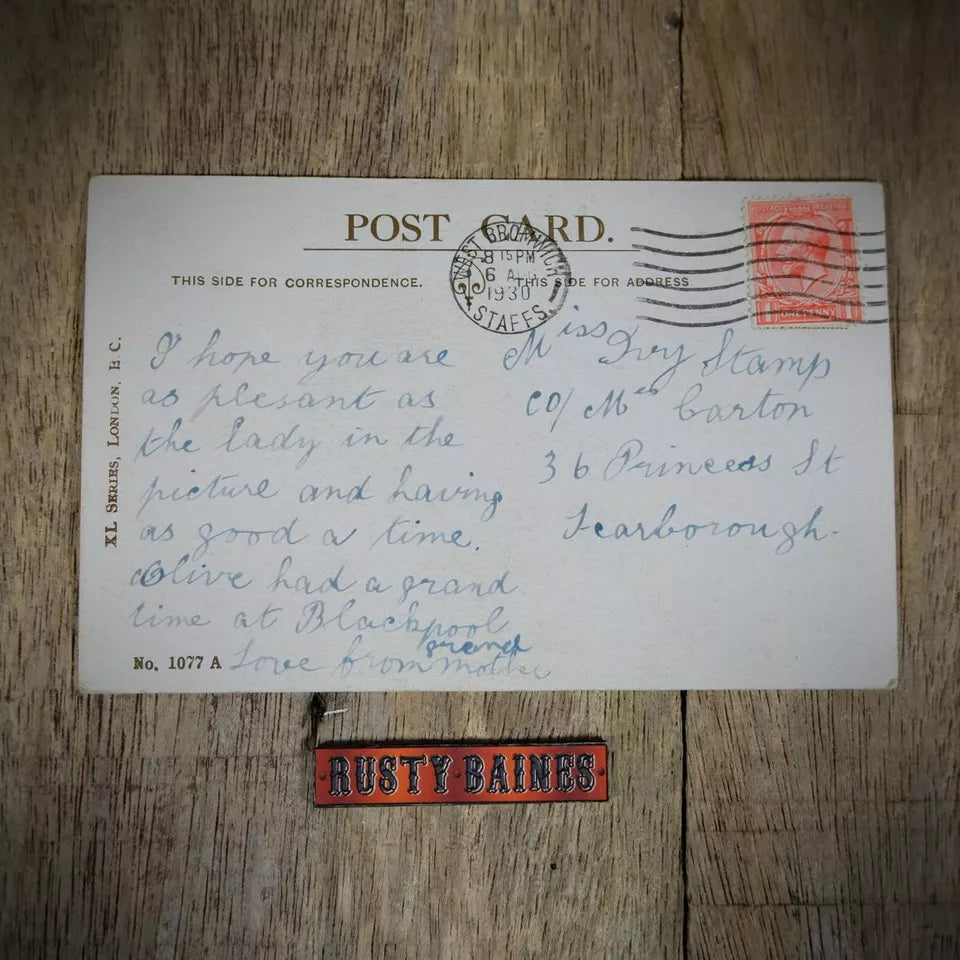 POST CARD.
THIS SIDE FOR CORRESPONDENCE.
THIS SIDE FOR ADDRESS
WEST BROMWICH
8 15 PM
6 AUG
1930
STAFFS.
POSTAGE REVENUE
ONE PENNY
XL SERIES, LONDON, E.C.
I hope you are
as plesant as
the lady in the
picture and having
as good a time.
Olive had a grand
time at Blackpool
Love from grand mother
No. 1077 A
Miss Ivy Stamp
CO/ Mrs Carton
36 Princess St
Scarborough.
RUSTY BAINES